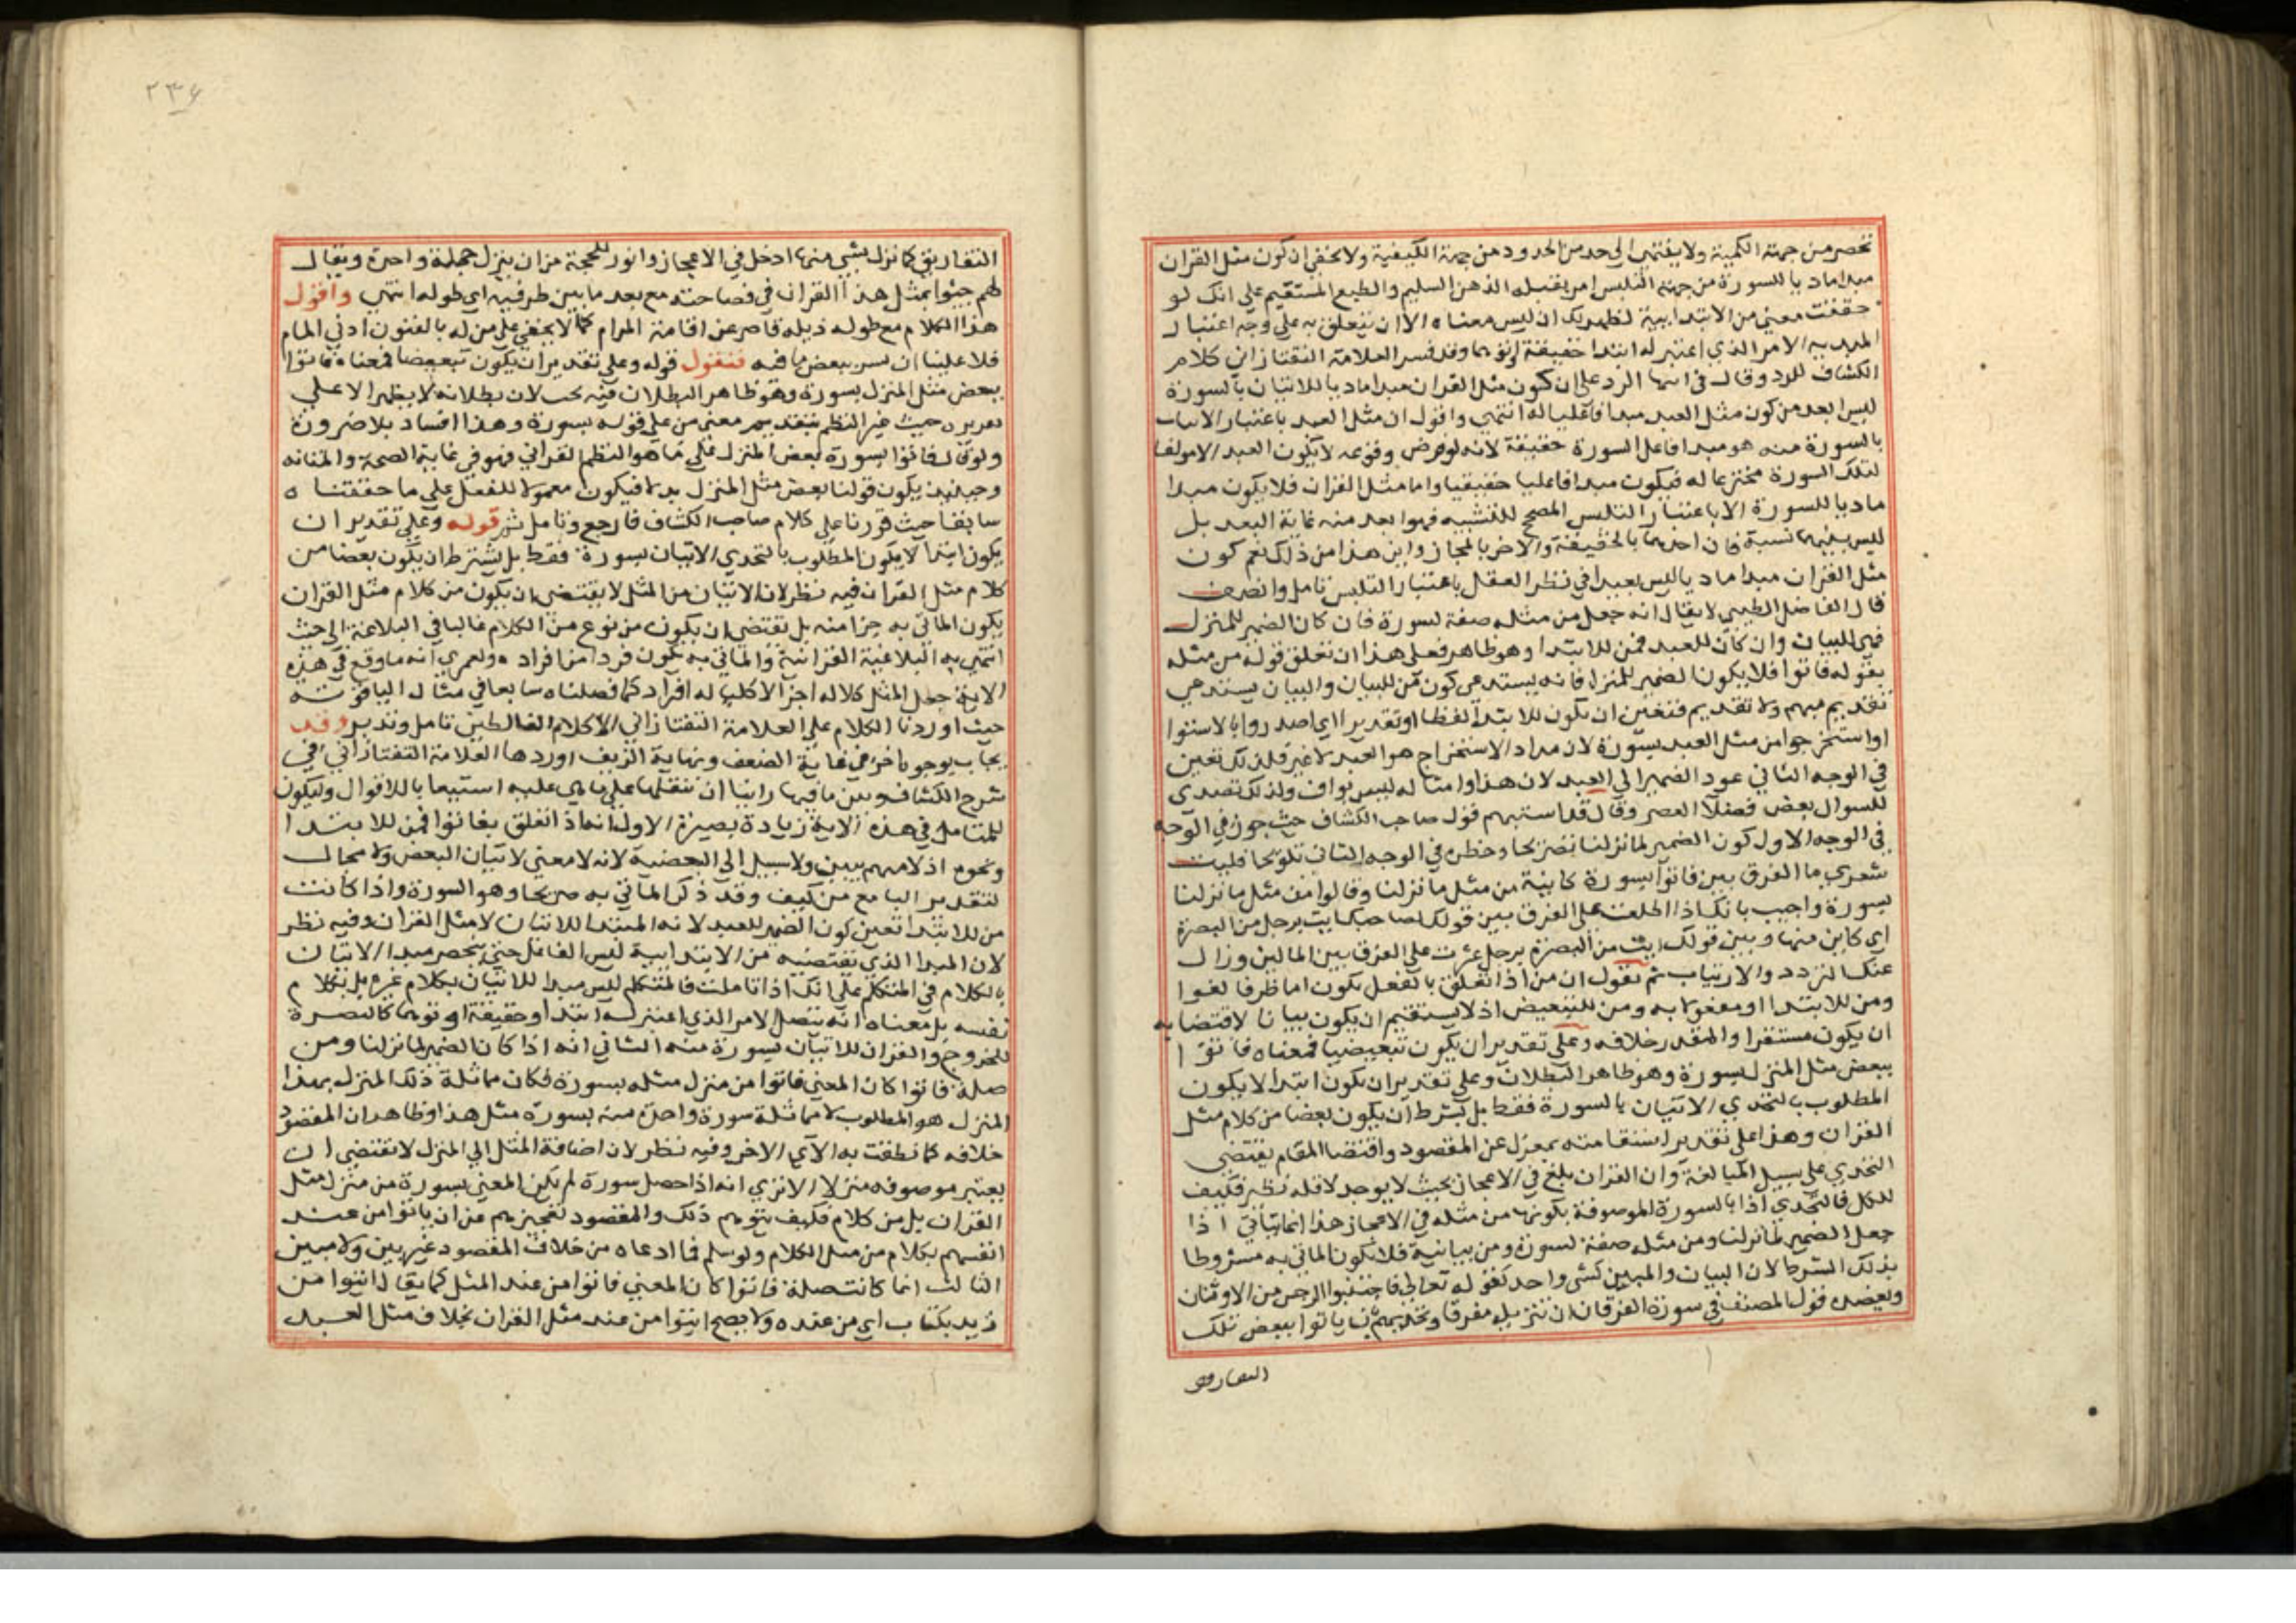 تنحصر من جهة الكمية ولا ينتهي الى حد من الحدود من جهة الكيفية ولا يخفى ان كون مثل القران
مبدا ماديا للسورة من جهة التلبس امر يقبله الذهن السليم والطبع المستقيم على انك لو
حققت معنى من الابتدائية لظهر لك ان ليس معناه الا ان يتعلق به على وجه اعتبار
المبدئية الامر الذي اعتبر له ابتدا حقيقة او توهما وقد فسر العلامة التفتازاني كلام
الكشاف للرد وقال في اثناء الرد على ان كون مثل القران مبدا ماديا للاتيان بالسورة
ليس ابعد من كون مثل العبد مبدا فاعليا له انتهى واقول ان مثل العبد باعتبار الاتيان
بالسورة منه هو مبدا فاعل السورة حقيقة لانه لو فرض وقوعه لا يكون العبد الا مولفا
لتلك السورة مخترعا له فيكون مبدا فاعليا حقيقيا واما مثل القران فلا يكون مبدا
ماديا للسورة الا باعتبار التلبس المصحح للتشبيه فهو ابعد منه غاية البعد بل
ليس بينهما نسبة فان احدهما بالحقيقة والاخر بالمجاز واين هذا من ذلك نعم كون
مثل القران مبدا ماديا ليس بعيدا في نظر العقل باعتبار التلبس تامل وانصف
قال الفاضل الطيبي لا يقال انه جعل من مثله صفة لسورة فان كان الضمير للمنزل
فهي للبيان وان كان للعبد فمن للابتدا وهو ظاهر فعلى هذا ان تعلق قوله من مثله
بقوله فاتوا فلا يكون الضمير للمنزل فانه يستدعي كون من للبيان والبيان يستدعي
تقديم مبهم ولا تقديم فتعين ان تكون للابتدا لفظا او تقديرا اي اصدروا بالاستوا
او استخرجوا من مثل العبد بسورة لان مدار الاستخراج هو العبد لا غير فلذلك تعين
في الوجه الثاني عود الضمير الى العبد لان هذا وامثاله ليس بواف ولذلك تصدى
للسوال بعض فضلاء العصر وقال قد استبهم قول صاحب الكشاف حيث جوز في الوجه
في الوجه الاول كون الضمير لما نزلنا تصريحا وحظره في الوجه الثاني تلويحا فليت
شعري ما الفرق بين فاتوا بسورة كاينة من مثل ما نزلنا وفاتوا من مثل ما نزلنا
بسورة واجيب بانك اذا اطلعت على الفرق بين قولك لصاحبك ايت برجل من البصرة
اي كاين منها وبين قولك ايت من البصرة برجل عثرت على الفرق بين المثالين وزال
عنك التردد والارتياب ثم نقول ان من اذا تعلق بالفعل يكون اما ظرفا لغوا
ومن للابتدا او مفعولا به ومن للتبعيض اذ لا يستقيم ان يكون بيانا لاقتضايه
ان يكون مستقرا والمقدر خلافه وعلى تقدير ان يكون تبعيضيا فمعناه فاتوا
ببعض مثل المنزل بسورة وهو ظاهر البطلان وعلى تقدير ان يكون ابتدا لا يكون
المطلوب بالتحدي الاتيان بالسورة فقط بل يشترط ان يكون بعضا من كلام مثل
القران وهذا على تقدير استقامته بمعزل عن المقصود واقتضا المقام يقتضي
التحدي على سبيل المبالغة وان القران بلغ في الاعجاز بحيث لا يوجد لاقله نظير فكيف
للكل فالتحدي اذا بالسورة الموصوفة بكونها من مثله في الاعجاز هذا انما يتأتى اذا
جعل الضمير لما نزلنا ومن مثله صفة لسورة ومن بيانية فلا يكون الماتي به مشروطا
بذلك الشرط لان البيان والمبين كشي واحد كقوله تعالى فاجتنبوا الرجس من الاوثان
ويعضده قول المصنف في سورة الفرقان ان تنزيله مفرقا وتحديهم بان ياتوا ببعض تلك
التفاريق
٢٣٤
التفاريق كما نزل شي منها ادخل في الاعجاز وانور للحجة من ان ينزل جملة واحدة ويقال
لهم جيئوا بمثل هذا القران في فصاحته مع بعد ما بين طرفيه اي طوله انتهى واقول
هذا الكلام مع طوله ذيله قاصر عن اقامة المرام كما لا يخفى على من له بالفنون ادنى المام
فلا علينا ان نبين بعض ما فيه فنقول قوله وعلى تقدير ان يكون تبعيضا فمعناه فاتوا
ببعض مثل المنزل بسورة وهو ظاهر البطلان فيه بحث لان بطلانه لا يظهر الا على
تقدير حيث غير النظم بتقديم معنى من على قوله بسورة وهذا افساد بلا ضرورة
ولو قال فاتوا بسورة بعض المنزل على ما هو النظم القراني فهو في غاية الصحة والمتانة
وحينيذ يكون قولنا بعض مثل المنزل بدلا فيكون معمولا للفعل على ما حققناه
سابقا حيث قررنا على كلام صاحب الكشاف فارجع وتامل ثم قوله وعلى تقدير ان
يكون ابتدا لا يكون المطلوب بالتحدي الاتيان بسورة فقط بل يشترط ان يكون بعضا من
كلام مثل القران فيه نظر لان الاتيان من المثل لا يقتضي ان يكون من كلام مثل القران
يكون الماتي به جزا منه بل يقتضي ان يكون من نوع من الكلام غالبا في البلاغة الى حيث
انتهى به البلاغية القرانية والماتي به يكون فردا من افراده ولعمري انه ما وقع في هذه
الاية جعل المثل كلا له اجزا لا كليا له افراد كما فصلناه سابقا في مثاله الياقوتة
حيث اوردنا الكلام على العلامة التفتازاني الا كلام الفاضلين تامل وتدبر وقد
يجاب بوجوه اخر في غاية الضعف ونهاية الزيف اوردها العلامة التفتازاني في
شرح الكشاف وبين ما فيها راينا ان ننقلها على ما هي عليه استيعابا للاقوال وليكون
للمتامل في هذه الاية زيادة بصيرة الاول انه اذا تعلق بفاتوا فمن للابتدا
ونحوه اذ لا مبهم يبين ولا سبيل الى البعضية لانه لا معنى لاتيان البعض ولا مجال
لتقدير البا مع من كيف وقد ذكر الماتي به صريحا وهو السورة واذا كانت
من للابتدا تعين كون الضمير للعبد لانه المبتدا للاتيان لا مثل القران وفيه نظر
لان المبدا الذي تقتضيه من الابتدائية ليس الفاعل حتى ينحصر مبدا الاتيان
بالكلام في المتكلم على انك اذا تاملت فالمتكلم ليس مبدا للاتيان بكلام غيره بل بكلام
نفسه بل معناه انه يتصل الامر الذي اعتبر له ابتدا وحقيقة او توهما كالبصرة
للخروج والقران للاتيان بسورة منه الثاني انه اذا كان الضمير لما نزلنا ومن
صلة فاتوا كان المعنى فاتوا من منزل مثله بسورة فكان مماثلة ذلك المنزل بهذا
المنزل هو المطلوب لا مماثلة سورة واحدة منه بسورة مثل هذا وظاهر ان المقصود
خلافه كما نطقت به الآي الاخر وفيه نظر لان اضافة المثل الى المنزل لا تقتضي ان
يعتبر موصوفه منزلا الا نزي انه اذا حصل سورة لم يكن المعنى بسورة من منزل مثل
القران بل من كلام فكيف يتوهم ذلك والمقصود تعجيزهم عن ان ياتوا من عند
انفسهم بكلام من مثل الكلام ولو سلم فما ادعاه من خلاف المقصود غير بين ولا مبين
الثالث انما كانت صلة فاتوا كان المعنى فاتوا من عند المثل كما يقال ايتوا من
زيد بكتاب اي من عنده ولا يصح ايتوا من عند مثل القران بخلاف مثل العبد